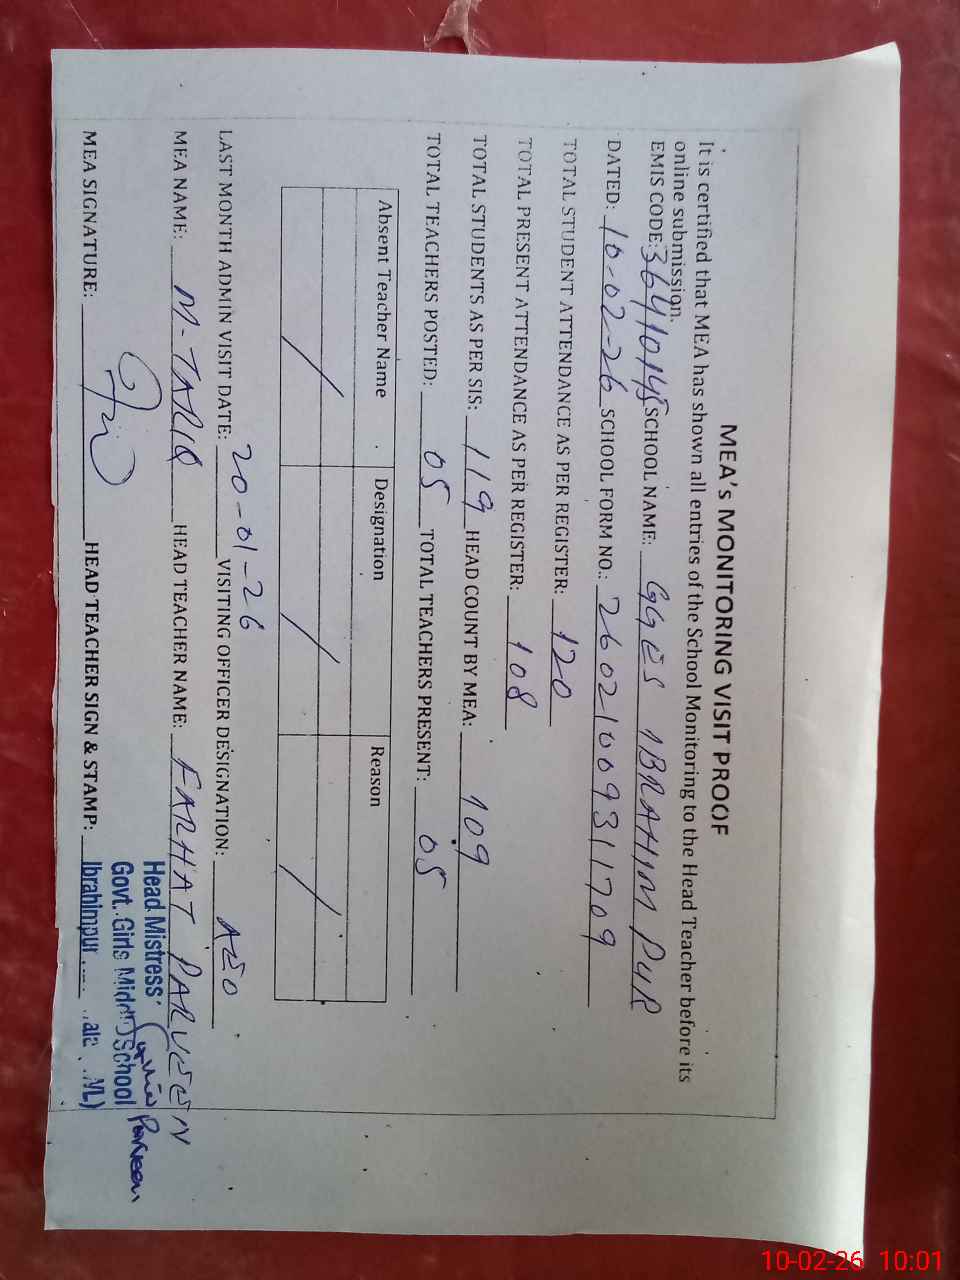 MEA's MONITORING VISIT PROOF
It is certified that MEA has shown all entries of the School Monitoring to the Head Teacher before its
online submission.
EMIS CODE: 36410145 SCHOOL NAME: GGES IBRAHIM PUR
DATED: 10-02-26 SCHOOL FORM NO.: 26021009311709
TOTAL STUDENT ATTENDANCE AS PER REGISTER: 120
TOTAL PRESENT ATTENDANCE AS PER REGISTER: 108
TOTAL STUDENTS AS PER SIS: 119 HEAD COUNT BY MEA: 109
TOTAL TEACHERS POSTED: 05 TOTAL TEACHERS PRESENT: 05
Absent Teacher Name Designation Reason
LAST MONTH ADMIN VISIT DATE: 20-01-26 VISITING OFFICER DESIGNATION: AEO
MEA NAME: M-TARIQ HEAD TEACHER NAME: FARHAT PARVEEN
MEA SIGNATURE: HEAD TEACHER SIGN & STAMP:
Head Mistress
Govt. Girls Middle School
Ibrahimpur
Parveen
10-02-26 10:01